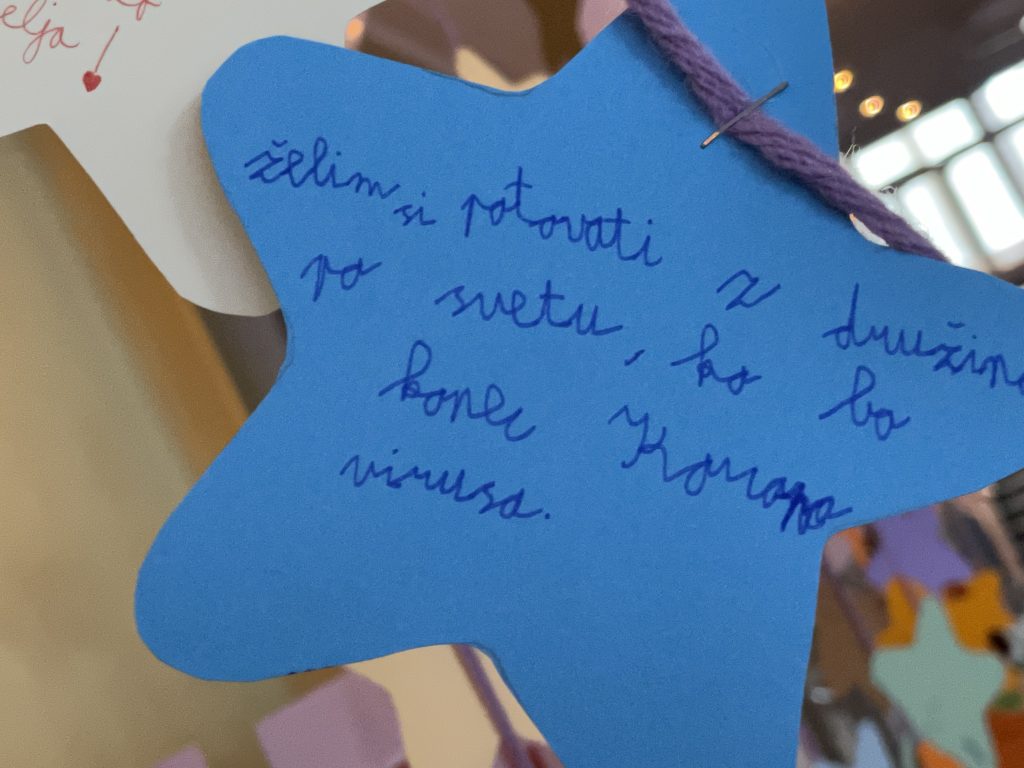 elja
želim si potovati
po svetu z družin
, ko bo
konec Korona
virusa.